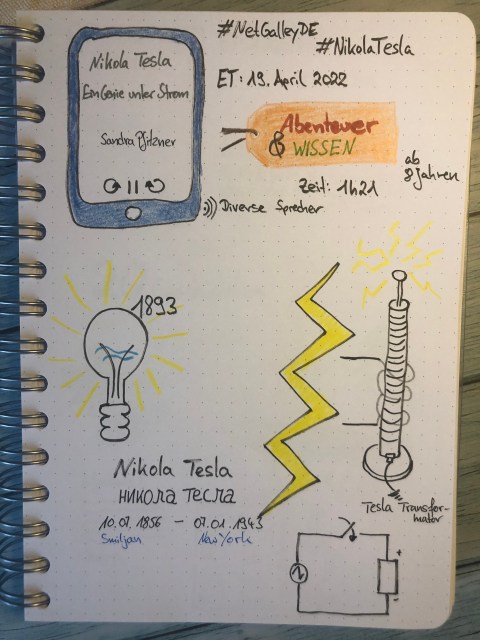 #NetGalleyDE
#NikolaTesla
Nikola Tesla
Ein Genie unter Strom
Sandra Pfitzner
ET: 19. April 2022
Abenteuer
& WISSEN
ab
8 Jahren
Zeit: 1h21
Diverse Sprecher
1893
Nikola Tesla
НИКОЛА ТЕСЛА
10.07.1856 – 07.01.1943
Smiljan New York
Tesla Transfor-
mator
+
-